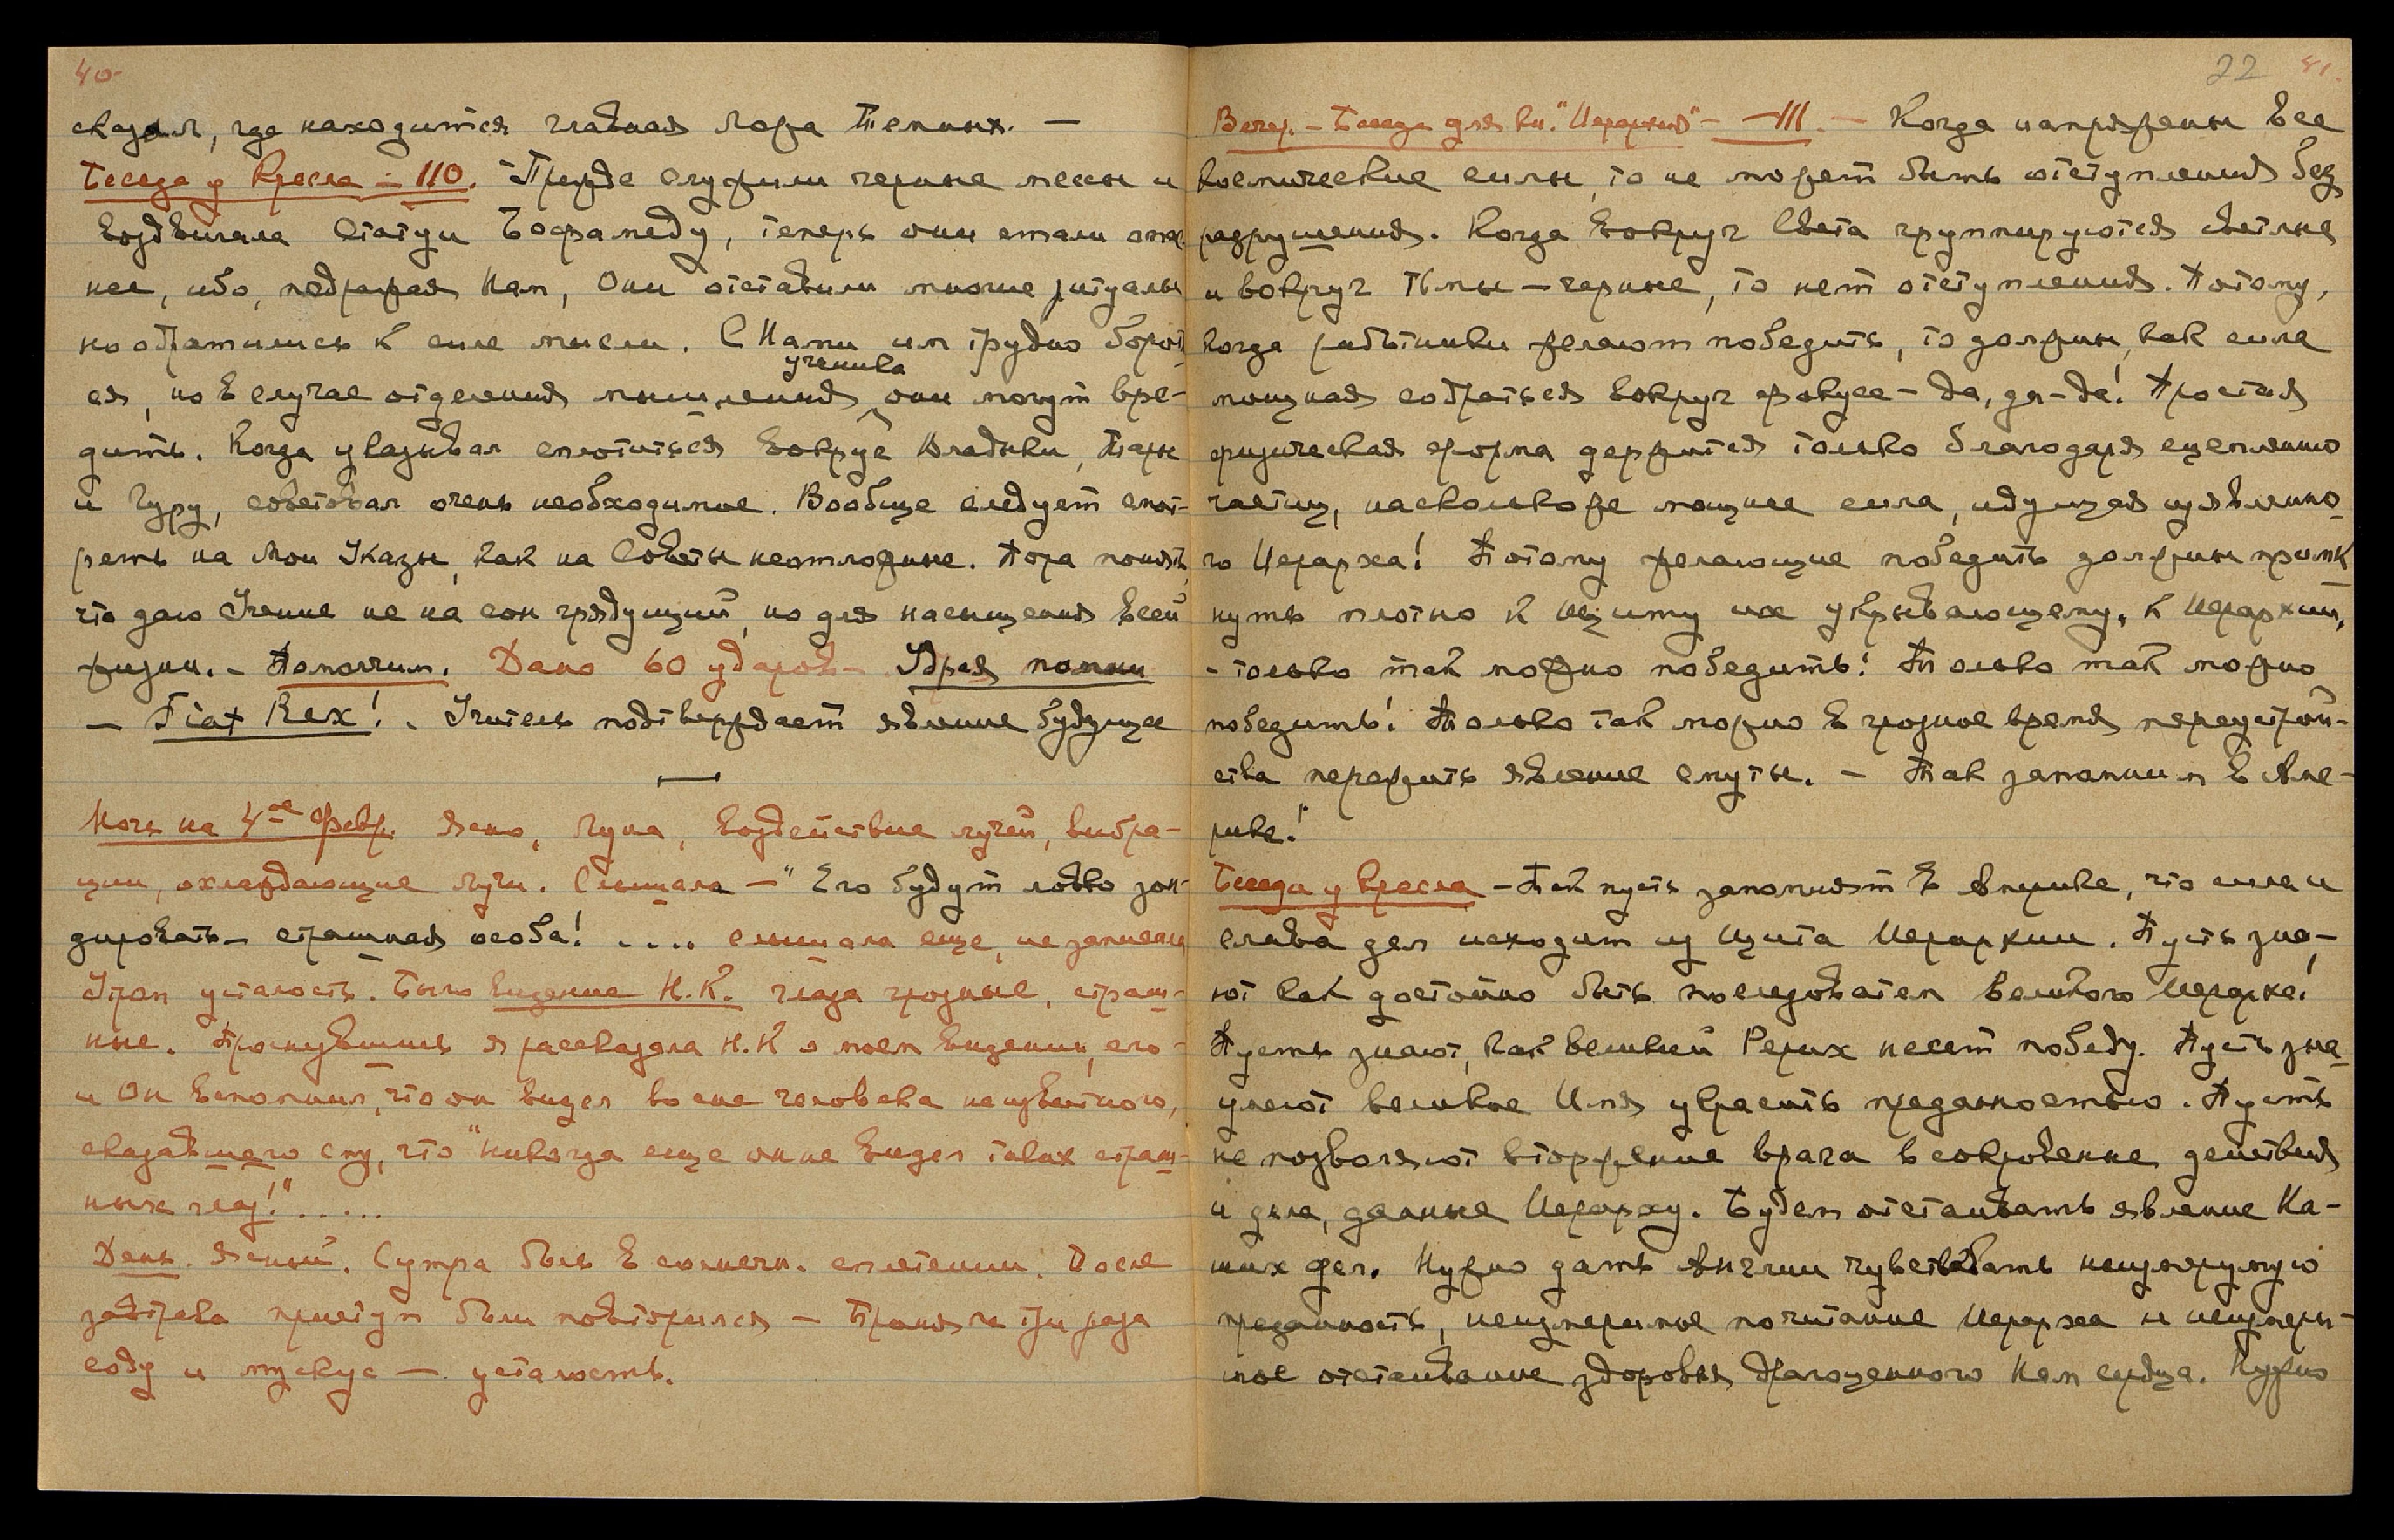 40-
сказал, где находится главная Ложа Темных. —
Беседа у Кресла — 110. Прежде служили черные мессы и
воздвигала статуи Бафамеду, теперь они стали опас-
нее, ибо, подражая Нам, Они отставили многие ритуалы
но обратились к силе мысли. С Нами им трудно бороть-
ученика
ся, но в случае отделения мышления они могут вре-
дить. Когда указывал сплотиться вокруг Владыки, Тары
и Гуру, советовал очень необходимое. Вообще следует смот-
реть на Мои Указы, как на Советы неотложные. Пора понять,
что даю Учение не на сон грядущий, но для насыщения всей
жизни. - Помолчим. Дано 60 ударов - Удрая помни
— Fiat Rex! . Учитель подтверждает явление будущее
Ночь на 4-ое Февр. Ясно, Луна, воздействие лучей, вибра-
ции, охлаждающие лучи. Слышала — "Его будут ловко зон-
дировать - страшная особа! .... слышала еще, не записала
Утром усталость. Было видение Н.К. глаза грозные, страш-
ные. Проснувшись я рассказала Н.К о моем видении его
и Он вспомнил, что он видел во сне человека неизвестного,
сказавшего ему, что "никогда еще он не видел таких страш-
ных глаз!".....
День. Ясный. С утра боль в солнечн. сплетении. После
завтрака приступ боли повторился — Приняла три раза
соду и мускус — усталость.
22 41.
Вечер. - Беседа для кн. "Иерархия" - — 111. — Когда напряжены все
космические силы, то не может быть отступления без
разрушения. Когда вокруг Света группируются светлые
и вокруг тьмы — черные, то нет отступления. Потому,
когда работники желают победить, то должны, как сила
мощная собраться вокруг фокуса - да, да - да! Простая
физическая форма держится только благодаря сцеплению
частиц, насколько же мощнее сила, идущая изъявленно-
го Иерарха! Потому желающие победить должны примк-
нуть плотно к Щиту их укрывающему, к Иерархии,
- только так можно победить! Только так можно
победить! Только так можно в грозное время переустрой-
ства пережить явление смуты. — Так запомним в Аме-
рике!
Беседа у Кресла - Так пусть запомнят в Америке, что сила и
слава дел исходит из Щита Иерархии. Пусть зна-
ют как достойно быть последователем Великого Иерарха!
Пусть знают, как великий Рерих несет победу. Пусть зна-
умеют великое Имя украсить преданностью. Пусть
не позволяют вторжение врага в сокровенные действия
и дела, данные Иерарху. Будем отстаивать явление На-
ших дел. Нужно дать Англии чувствовать неизмеримую
преданность, неизмеримое почитание Иерарха и неизмери-
мое отстаивание здоровья драгоценного Нам сердца. Нужно